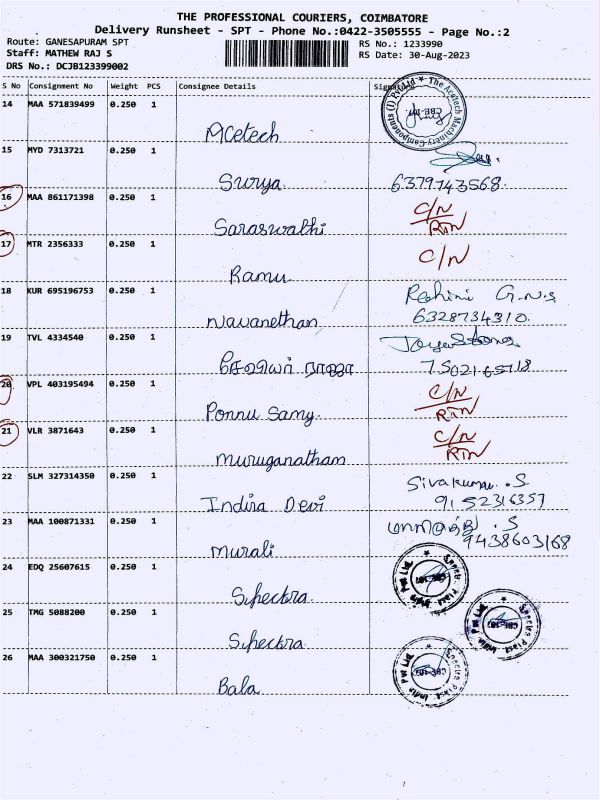 THE PROFESSIONAL COURIERS, COIMBATORE
Delivery Runsheet - SPT - Phone No.:0422-3505555 - Page No.:2
Route: GANESAPURAM SPT RS No.: 1233990
Staff: MATHEW RAJ S RS Date: 30-Aug-2023
DRS No.: DCJB123399002
S No Consignment No Weight PCS Consignee Details
14 MAA 571839499 0.250 1
The Acetech Machinery Components (I) Pvt Ltd
Acetech
15 MYD 7313721 0.250 1
Surya 6379743568.
16 MAA 861171398 0.250 1 C/N
Saraswathi RTN
17 MTR 2356333 0.250 1 C/N
Ramu
18 KUR 695196753 0.250 1 G.N.S
Navanethan 6328734310.
19 TVL 4334540 0.250 1
20 VPL 403195494 0.250 1 C/N
Ponnu Samy. RTN
21 VLR 3871643 0.250 1 C/N
Muruganatham RTN
22 SLM 327314350 0.250 1 Sivakumar.S
Indira Devi 9152316357
23 MAA 100871331 0.250 1 .S
Murali 9438603168
24 EDQ 25607615 0.250 1
Spectra Plast India Pvt Ltd.
25 TMG 5088200 0.250 1
Spectra Plast India Pvt Ltd.
26 MAA 300321750 0.250 1
Spectra Plast India Pvt Ltd.
Bala